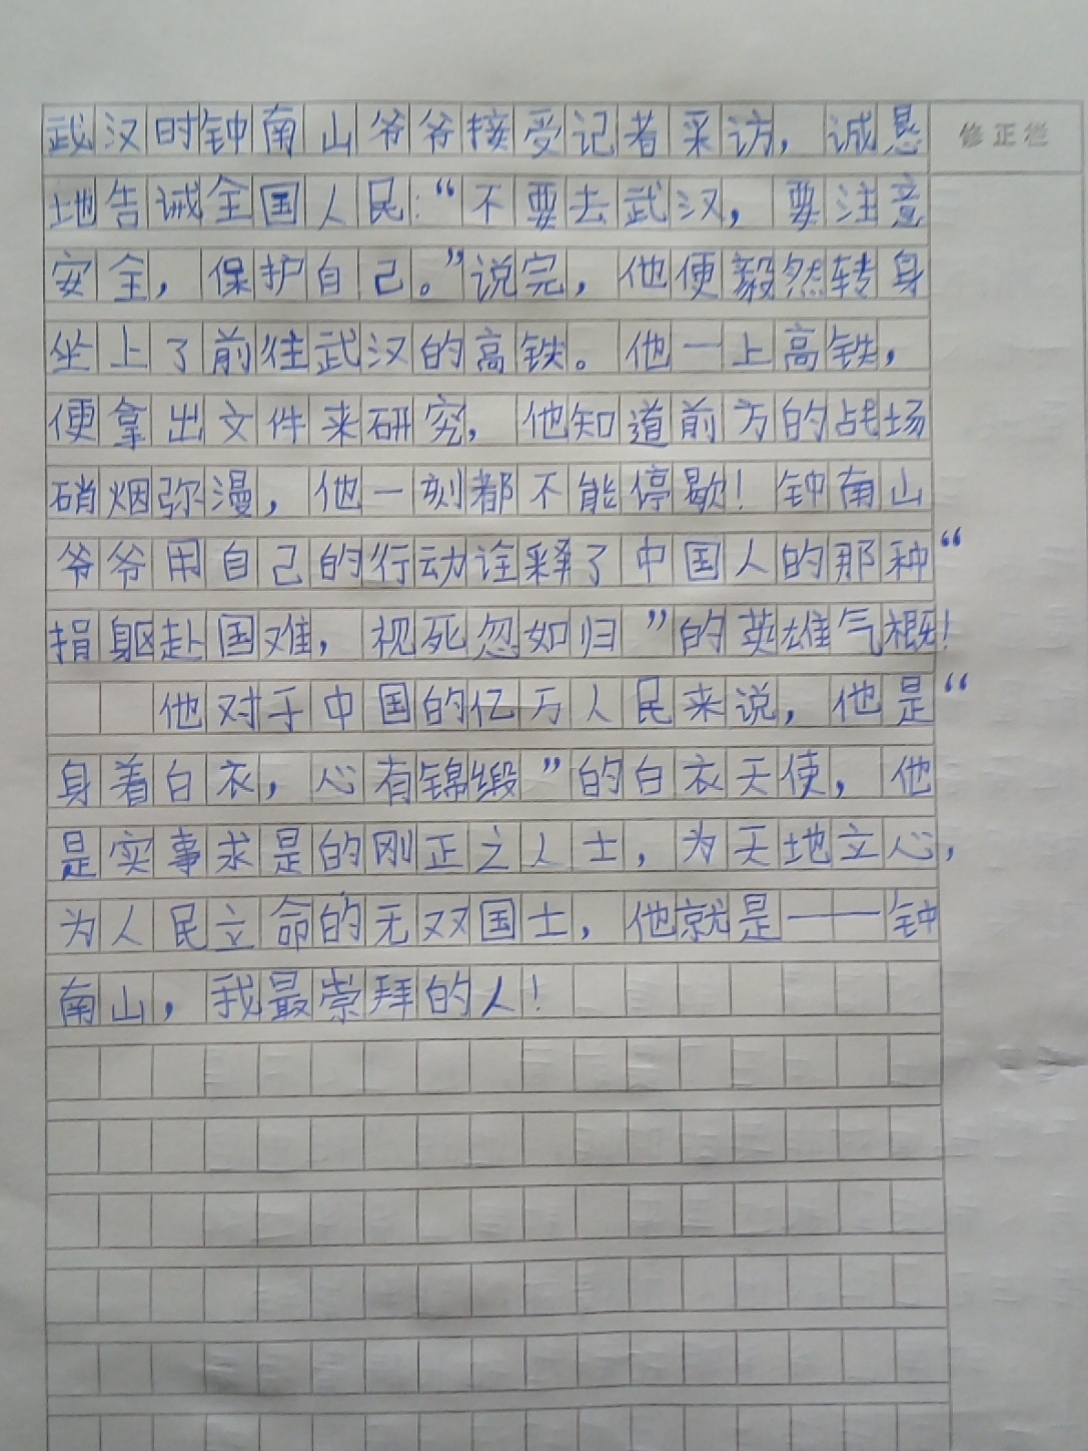 武汉时钟南山爷爷接受记者采访，诚恳
修正栏
地告诫全国人民：“不要去武汉，要注意
安全，保护自己。”说完，他便毅然转身
坐上了前往武汉的高铁。他一上高铁，
便拿出文件来研究，他知道前方的战场
硝烟弥漫，他一刻都不能停歇！钟南山
爷爷用自己的行动诠释了中国人的那种“
捐躯赴国难，视死忽如归”的英雄气概！
他对于中国的亿万人民来说，他是“
身着白衣，心有锦缎”的白衣天使，他
是实事求是的刚正之人士，为天地立心，
为人民立命的无双国士，他就是——钟
南山，我最崇拜的人！